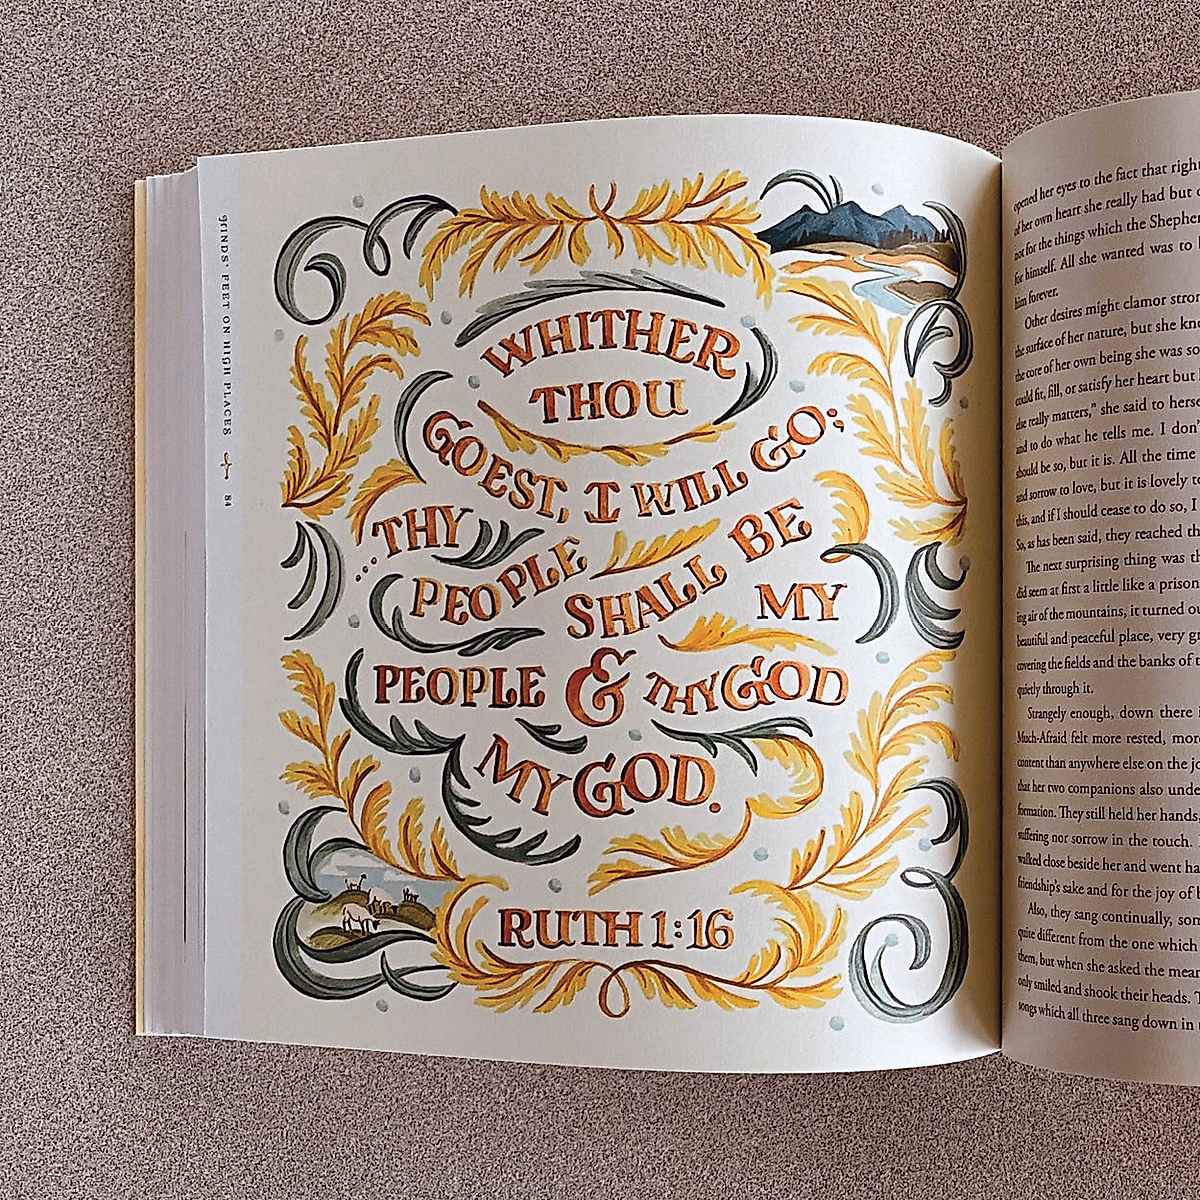 HINDS' FEET ON HIGH PLACES
84
WHITHER
THOU
GOEST, I WILL GO;
THY
PEOPLE SHALL BE
MY
PEOPLE & THY GOD
MY GOD.
RUTH 1:16
opened her eyes to the fact that right
of her own heart she really had but
not for the things which the Shepher
for himself. All she wanted was to
him forever.
Other desires might clamor stron
the surface of her nature, but she kn
the core of her own being she was so
could fit, fill, or satisfy her heart but
else really matters," she said to herse
and to do what he tells me. I don'
should be so, but it is. All the time
and sorrow to love, but it is lovely to
this, and if I should cease to do so, I
So, as has been said, they reached th
The next surprising thing was th
did seem at first a little like a prison
ing air of the mountains, it turned ou
beautiful and peaceful place, very gr
covering the fields and the banks of t
quietly through it.
Strangely enough, down there i
Much-Afraid felt more rested, mor
content than anywhere else on the jo
that her two companions also unde
formation. They still held her hands,
suffering nor sorrow in the touch.
walked close beside her and went ha
friendship's sake and for the joy of b
Also, they sang continually, som
quite different from the one which
them, but when she asked the mean
only smiled and shook their heads. T
songs which all three sang down in t